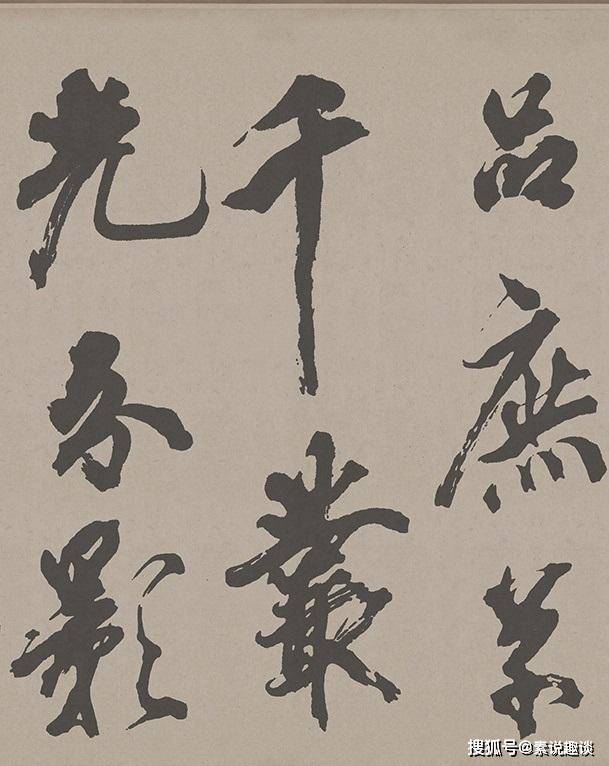 品庶
千叢
光分影
搜狐号@素说趣谈